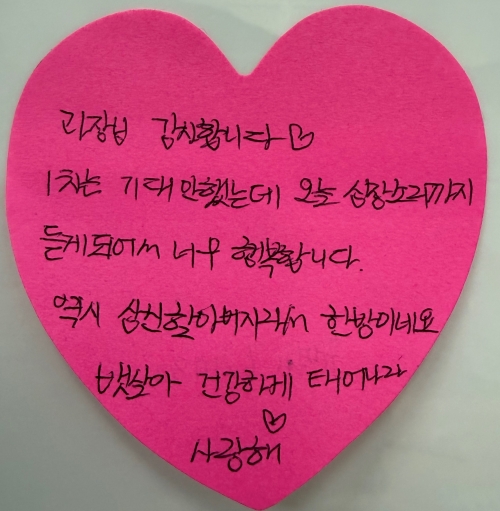 과장님 감사합니다♡
1차는 기대 안했는데 오늘 심장소리까지
듣게되어서 너무 행복합니다.
역시 삼신할아버지라서 한방이네요
뱃살아 건강하게 태어나라
♡
사랑해